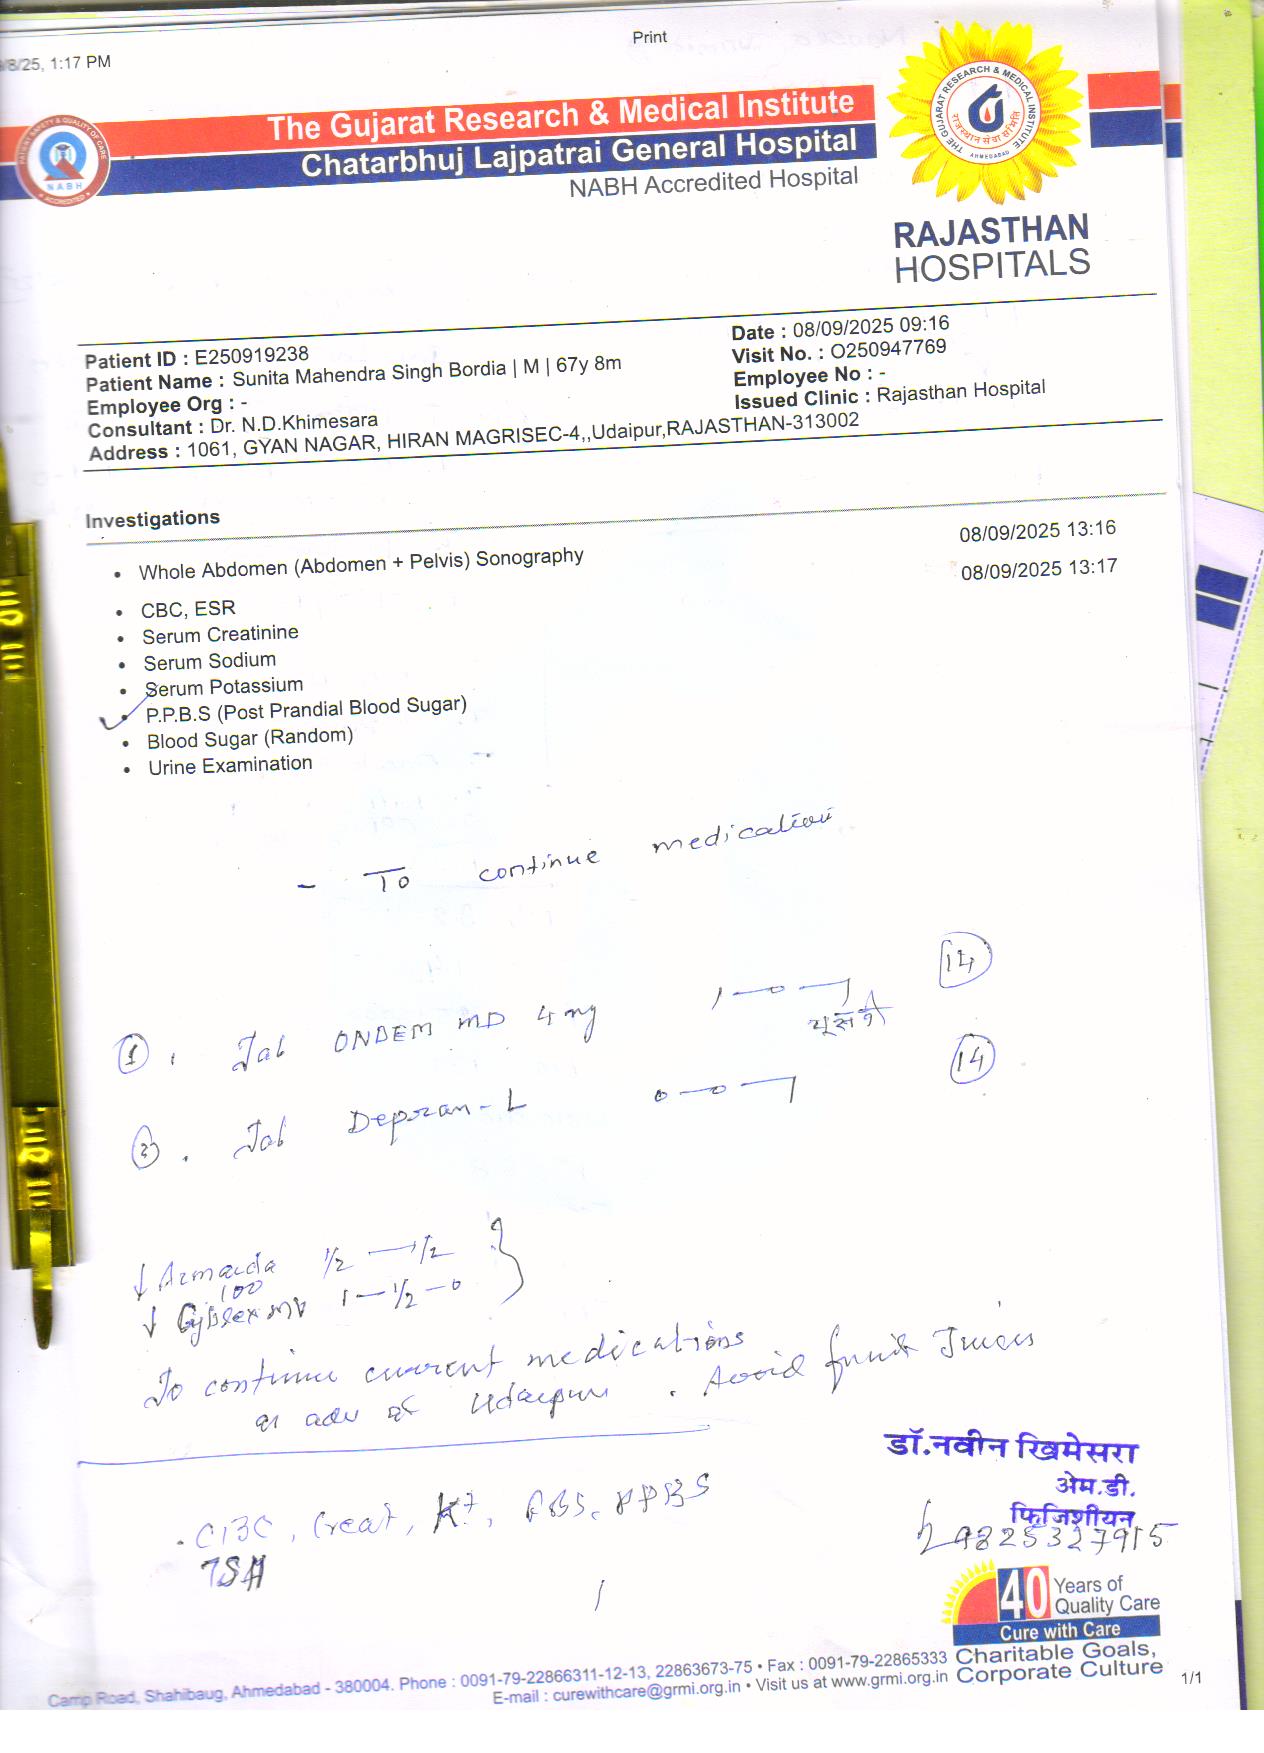 Print
/8/25, 1:17 PM
The Gujarat Research & Medical Institute
Chatarbhuj Lajpatrai General Hospital
NABH Accredited Hospital
PATIENT SAFETY & QUALITY OF CARE
NABH
ACCREDITED
THE GUJARAT RESEARCH & MEDICAL INSTITUTE
राजस्थान सेवा समिति
AHMEDABAD
RAJASTHAN
HOSPITALS
Patient ID : E250919238
Date : 08/09/2025 09:16
Patient Name : Sunita Mahendra Singh Bordia | M | 67y 8m
Visit No. : O250947769
Employee Org : -
Employee No : -
Consultant : Dr. N.D.Khimesara
Issued Clinic : Rajasthan Hospital
Address : 1061, GYAN NAGAR, HIRAN MAGRISEC-4,,Udaipur,RAJASTHAN-313002
Investigations
• Whole Abdomen (Abdomen + Pelvis) Sonography 08/09/2025 13:16
• CBC, ESR 08/09/2025 13:17
• Serum Creatinine
• Serum Sodium
• Serum Potassium
• P.P.B.S (Post Prandial Blood Sugar)
• Blood Sugar (Random)
• Urine Examination
- To continue medication
① . Tab ONDEM MD 4 mg 1—0—1 14
② . Tab Depran-L 0—0—1 14
↓ 1/2 — 1/2
100
↓ 1 — 1/2 — 0
To continue current medications
as adv at Udaipur . Avoid fruit Juices
. CBC, Creat, K+, FBS, PPBS
TSH
डॉ.नवीन खिमेसरा
अेम.डी.
फिजिशीयन
9825327915
40 Years of
Quality Care
Cure with Care
Charitable Goals,
Corporate Culture
Camp Road, Shahibaug, Ahmedabad - 380004. Phone : 0091-79-22866311-12-13, 22863673-75 • Fax : 0091-79-22865333
E-mail : curewithcare@grmi.org.in • Visit us at www.grmi.org.in
1/1